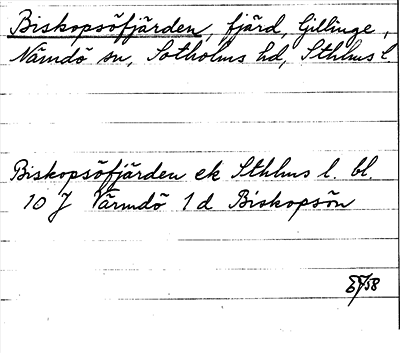 Biskopsöfjärden, fjärd, Gillinge,
Nämdö sn, Sotholms hd, Sthlms l.
Biskopsöfjärden ek Sthlms l. bl.
10 J Värmdö 1 d Biskopsön
58